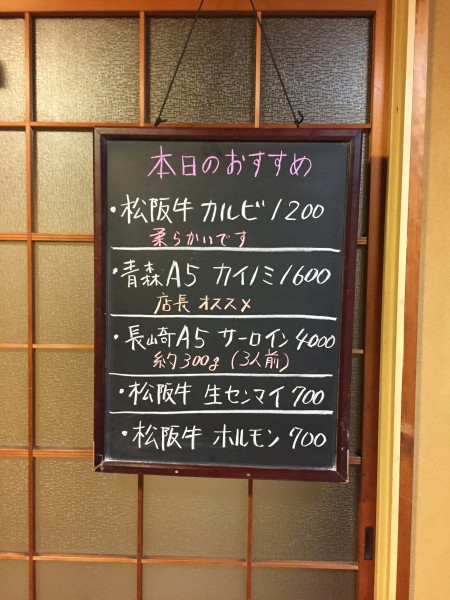 本日のおすすめ
・松阪牛 カルビ 1200
柔らかいです
・青森A5 カイノミ 1600
店長 オススメ
・長崎A5 サーロイン 4000
約300g (3人前)
・松阪牛 生センマイ 700
・松阪牛 ホルモン 700